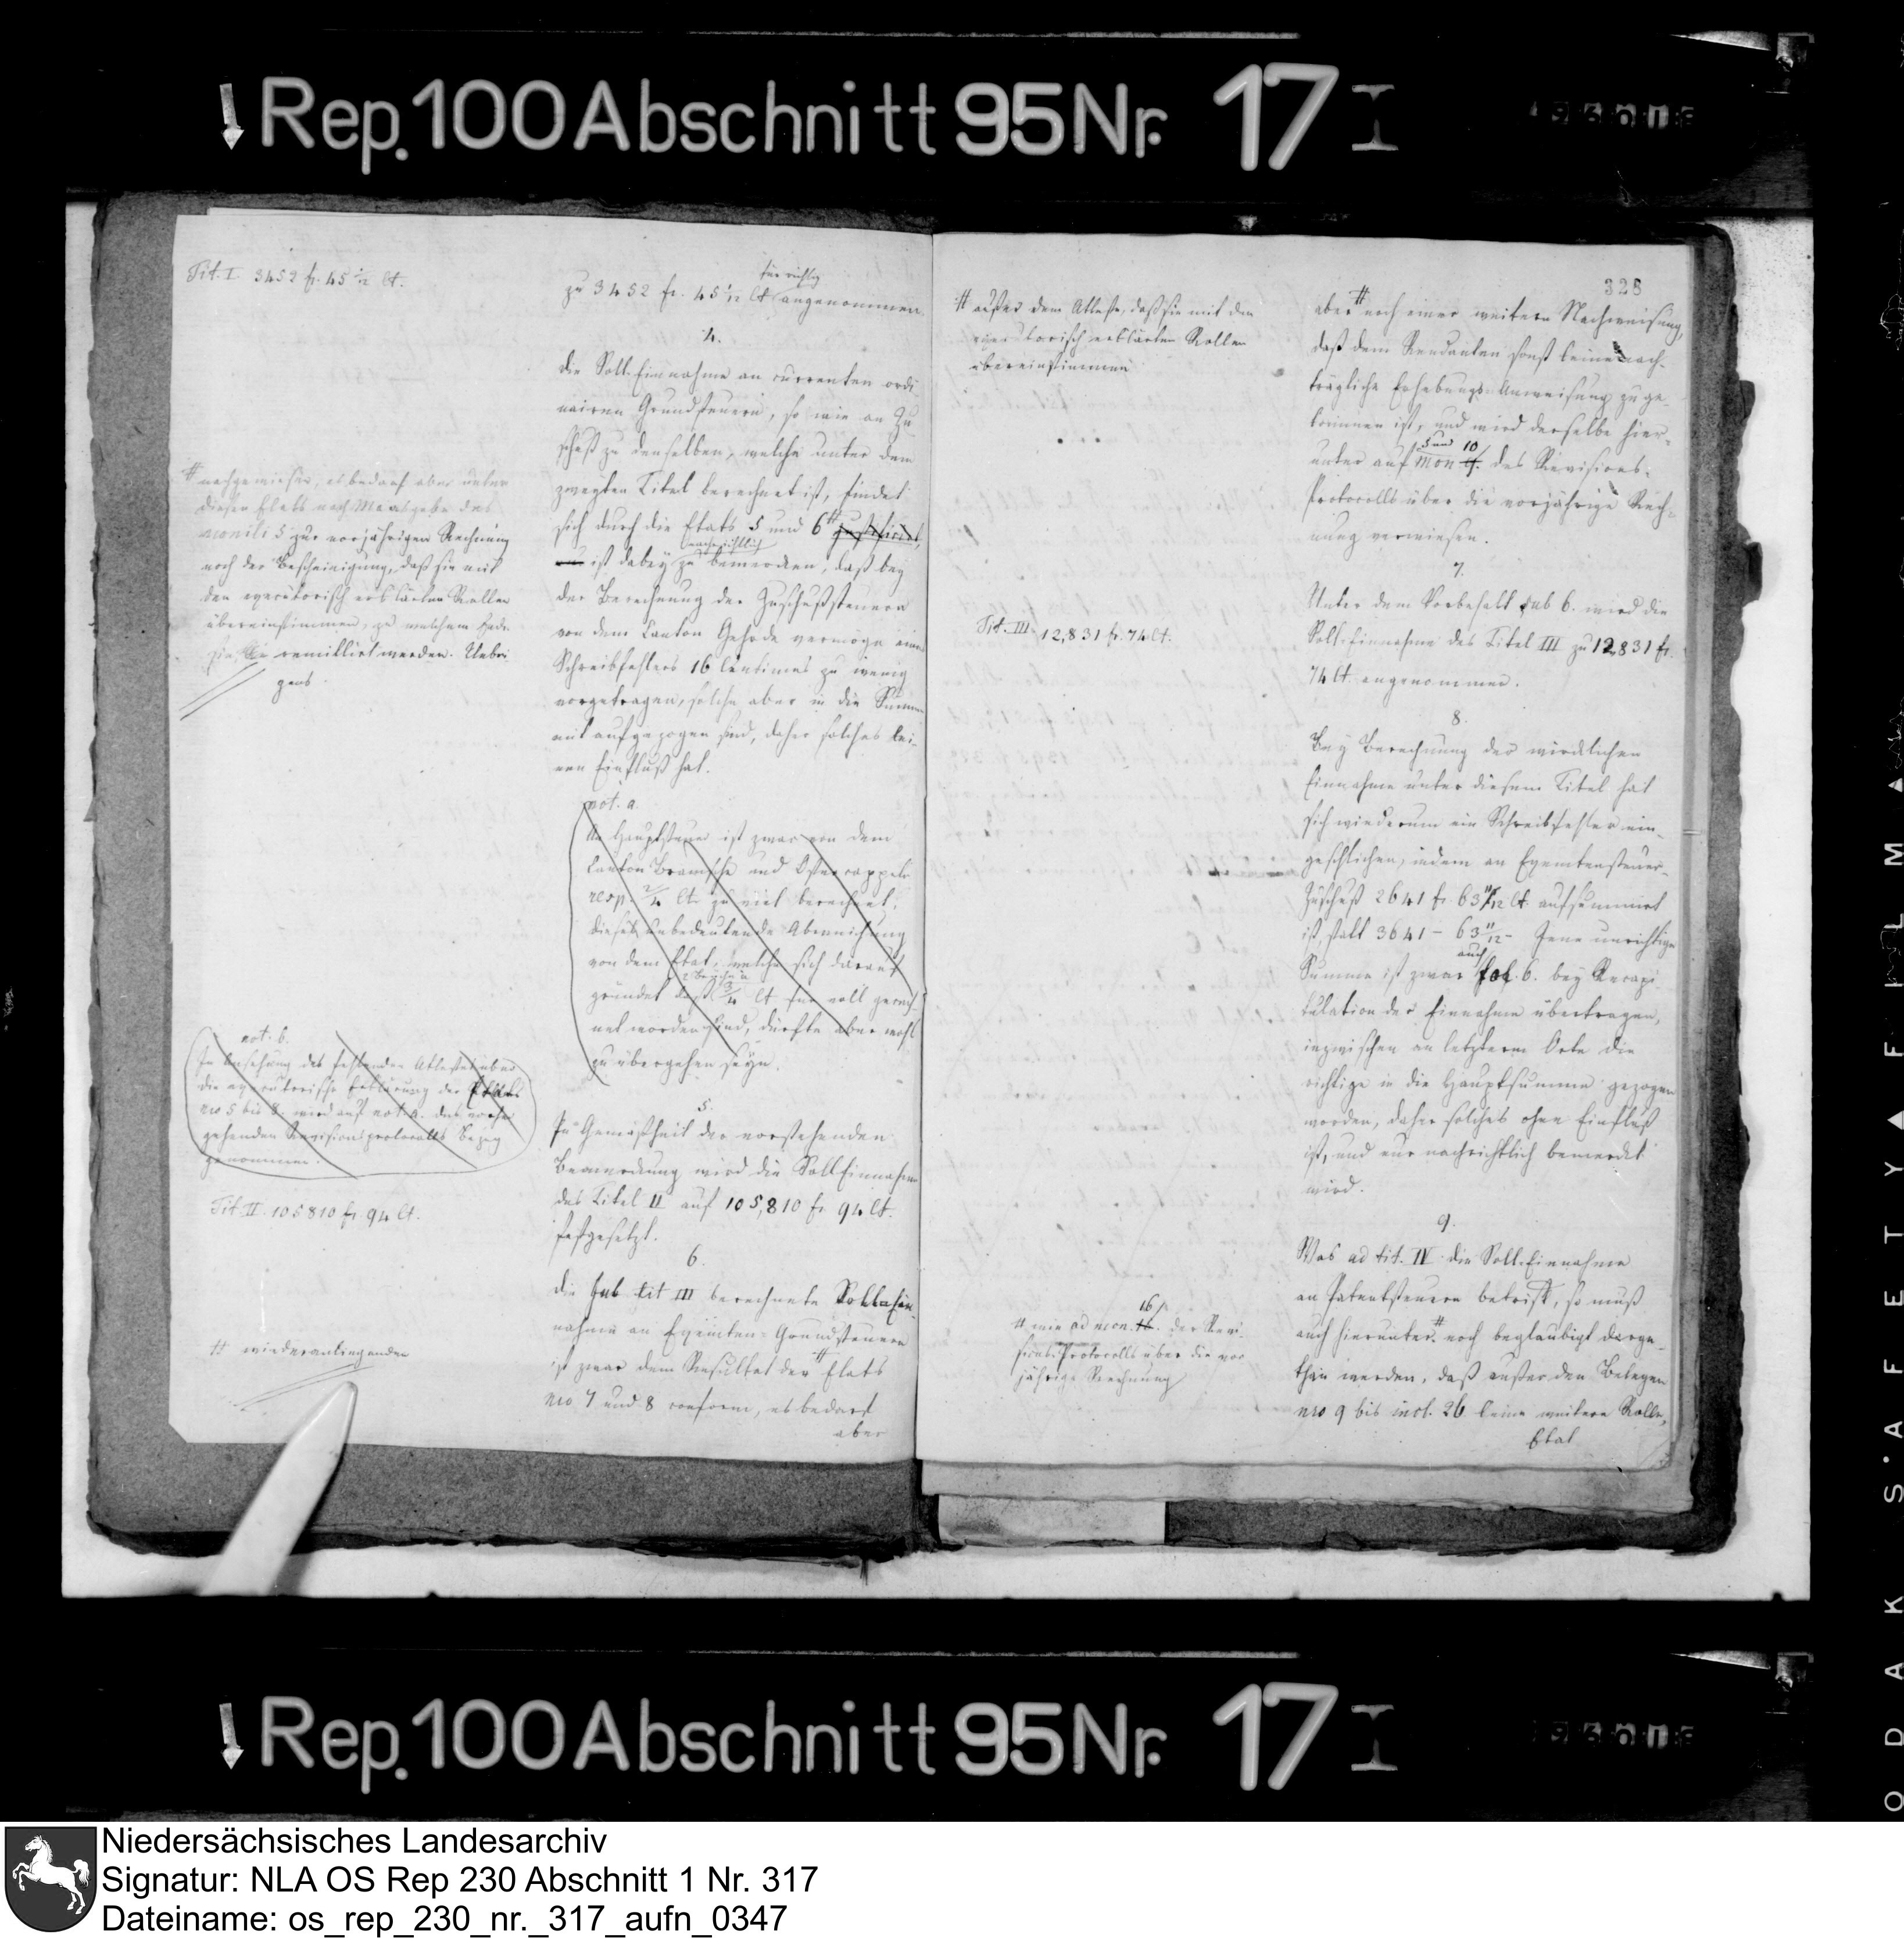 Rep. 100 Abschnitt 95 Nr. 17 I
Tit. I. 3452 fr. 45 1/12 Ct.
# nachgewiesen, es bedarf aber unter
diesen Etats nach Maasgabe des
monili 5 zur vorjährigen Rechnung
noch der Bescheinigung, daß sie mit
den executorisch erklärten Rollen
übereinstimmen, zu welchem Ende
sie remittirt werden. Uebri
gens
not. b.
In Ansehung des fehlenden Attestes über
die executorische Erklärung der Etats
nro 5 bis 8. wird auf not. a. des vorher
gehenden Revisionsprotocolls Bezug
genommen.
Tit. II. 105810 fr. 94 Ct.
# wiederanliegenden
für richtig
zu 3452 fr. 45 1/12 Ct angenommen.
4.
Die Soll-Einnahme an currenten ordi
nairen Grundsteuern, so wie an Zu
schuß zu denselben, welche unter dem
zweyten Titel berechnet ist, findet
sich durch die Etats 5 und 6 # justificirt,
nachrichtlich
ist dabey zu bemercken, daß bey
der Berechnung der Zuschußsteuern
von dem Canton Gehrde vermöge eines
Schreibfehlers 16 Centimes zu wenig
vorgetragen, solche aber in die Summe
mit aufgezogen sind, daher solches kei-
nen Einfluß hat.
not. a.
An Hauptsteuer ist zwar von dem
Canton Bramsche und Ostercappeln
resp. 2/4 Ct. zu viel berechnet;
diese unbedeutende Abweichung
von dem Etat, welche sich darauf
gründet daß 3/4 Ct für voll gerech
net worden sind, dürfte aber wohl
zu übergehen seyn.
5.
In Gemäßheit der vorstehenden
Bemerckung wird die Soll Einnahme
des Titel II auf 105,810 fr 94 Ct.
festgesetzt.
6.
Die sub tit III berechnete Soll-Ein-
nahme an Exemten-Grundsteuern
ist zwar dem Resultat der # Etats
nro 7 und 8 conform, es bedarf
aber
# außer dem Atteste, daß sie mit den
executorisch erklärten Rollen
übereinstimmen
Tit. III 12,831 fr. 74 Ct.
16
# wie ad mon. der Revi
sions-Protocolls über die vor
jährige Rechnung
328
aber # noch einer weitern Nachweisung,
daß dem Rendanten sonst keine nach-
trägliche Erhebungs-Anweisung zuge-
kommen ist, und wird derselbe hier-
5 und 10
unter auf mon 9. des Revisions-
Protocolls über die vorjährige Rech-
nung verwiesen.
7.
Unter dem Vorbehalt sub 6. wird die
Soll-Einnahme des Titel III zu 12,831 fr.
74 Ct. angenommen.
8.
Bey Berechnung der wircklichen
Einnahme unter diesem Titel hat
sich wiederum ein Schreibfehler ein-
geschlichen, indem an Exemtensteuer-
Zuschuß 2641 fr. 63 11/12 Ct. aufsummirt
ist, statt 3641 - 63 11/12 - Jene unrichtige
auch
Summe ist zwar fol. 6. bey Recapi
tulation der Einnahme übertragen,
inzwischen an letzterm Orte die
richtige in die Hauptsumme gezogen
worden, daher solches ohne Einfluß
ist, und nur nachrichtlich bemerckt
wird.
9.
Was ad tit. IV die Soll-Einnahme
an Patentsteuern betrift, so muß
auch hierunter # noch beglaubigt darge-
than werden, daß außer den Belegen
nro 9 bis incl. 26 keine weitere Rolle,
Etat
Rep. 100 Abschnitt 95 Nr. 17 I
KODAK SAFETY FILM
Niedersächsisches Landesarchiv
Signatur: NLA OS Rep 230 Abschnitt 1 Nr. 317
Dateiname: os_rep_230_nr._317_aufn_0347